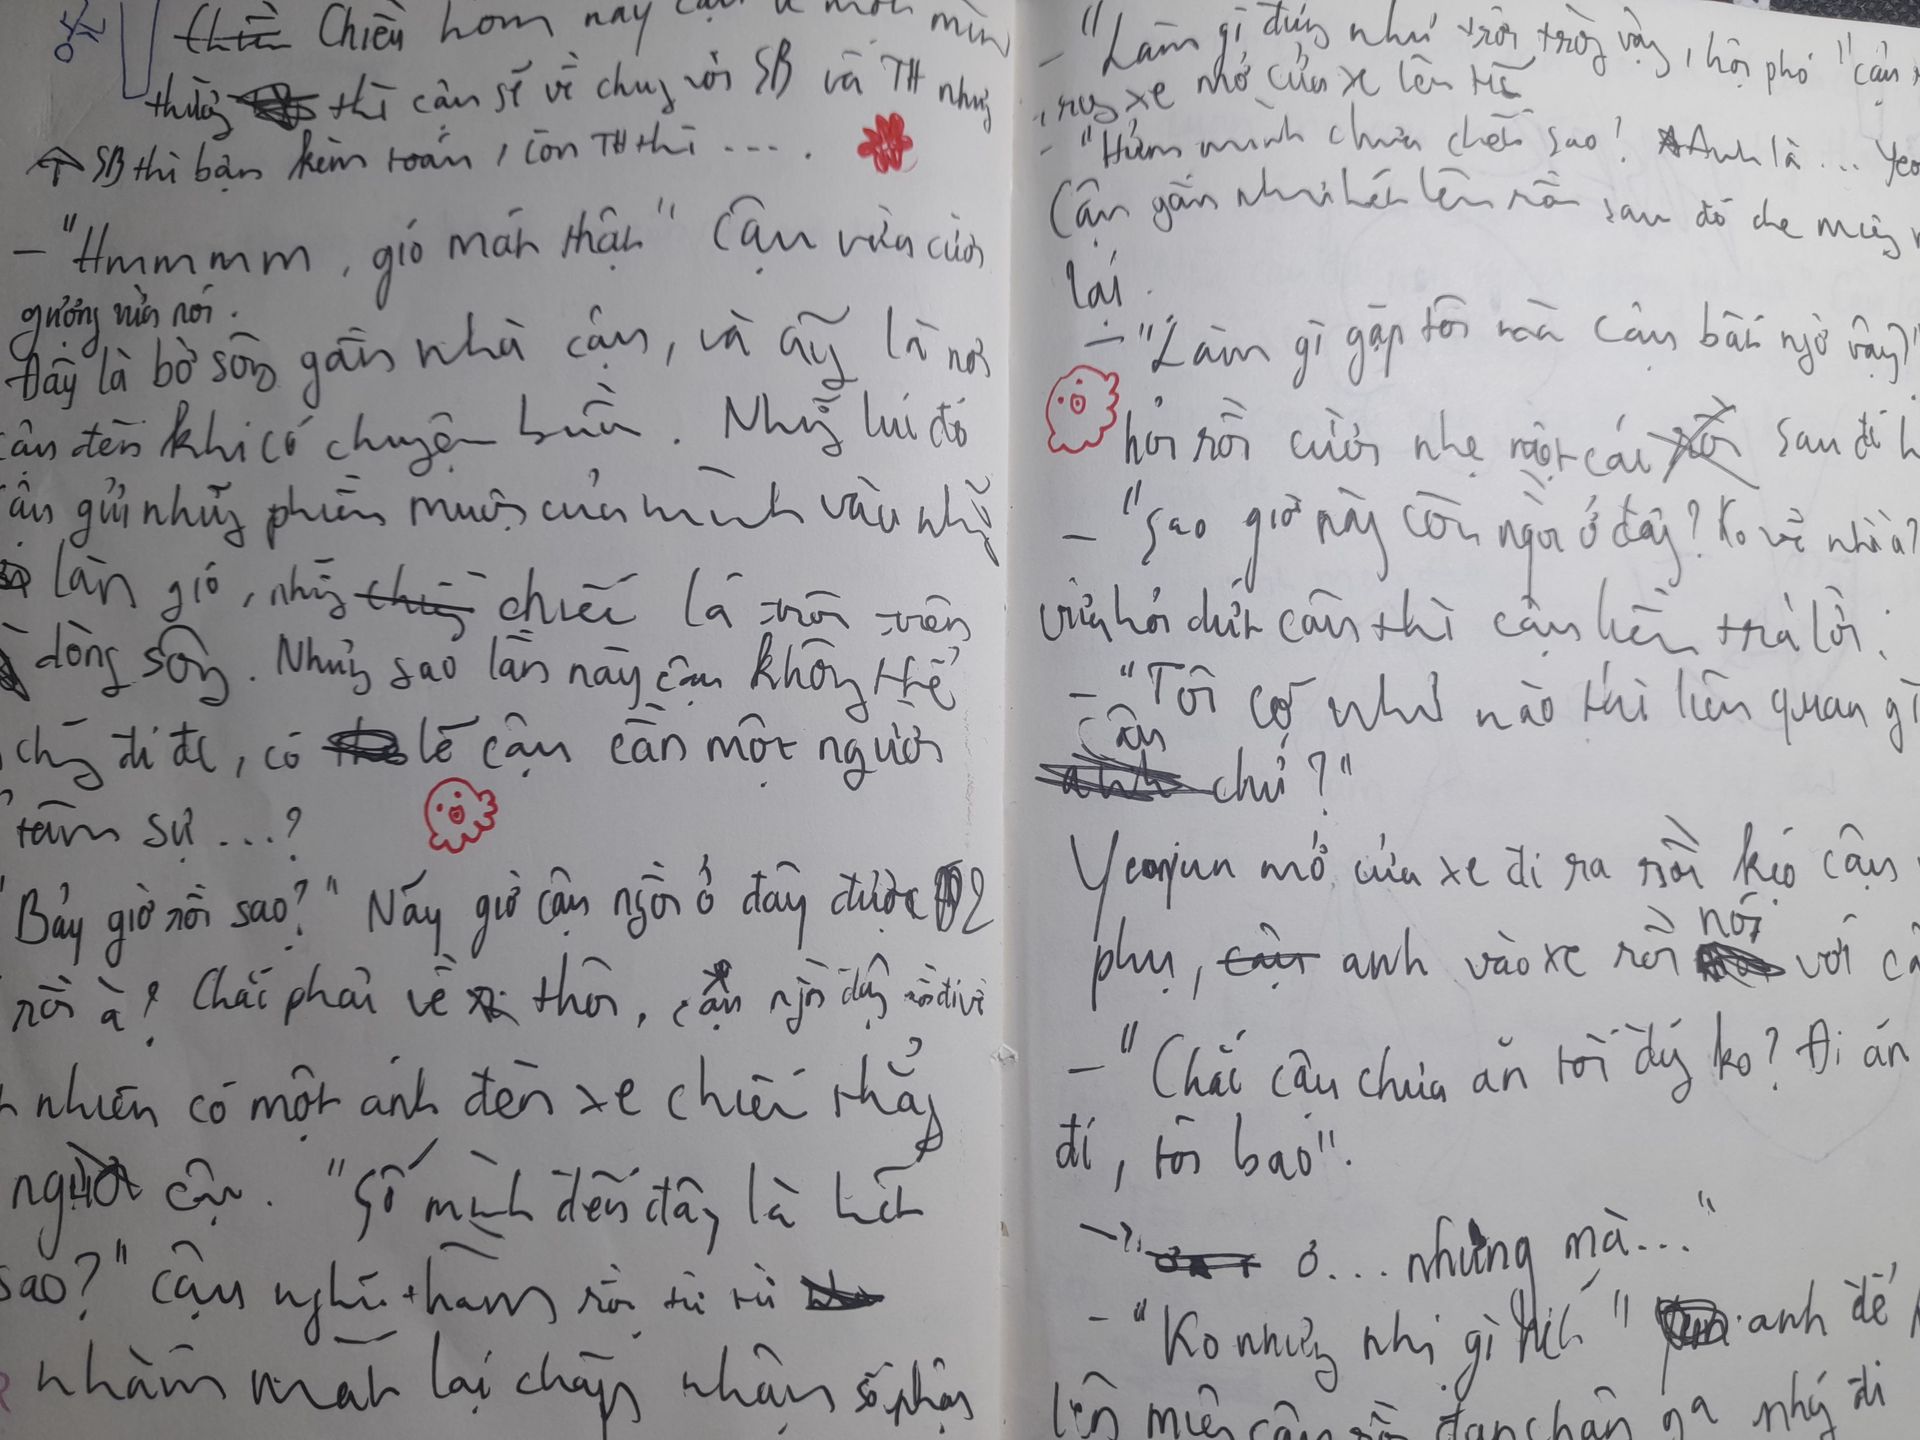 Chiều hôm nay cậu về một mình
thường thì cậu sẽ về chung với SB và TH nhưng
SB thì bận kèm toán, còn TH thì ....
- "Hmmmm, gió mát thật" Cậu vừa cười
gượng vừa nói.
Đây là bờ sông gần nhà cậu, và ấy là nơi
cậu đến khi có chuyện buồn. Những lúc đó
cậu gửi những phiền muộn của mình vào những
làn gió, những chiếc lá trôi trên
dòng sông. Nhưng sao lần này cậu không thể
chúng đi đc, có lẽ cậu cần một người
tâm sự ...?
"Bảy giờ rồi sao?" Nãy giờ cậu ngồi ở đây được 2
rồi à? Chắc phải về thôi, cậu ngồi dậy rồi đi về
nhiên có một ánh đèn xe chiếu thẳng
người cậu. "Số mình đến đây là hết
sao?" Cậu nghĩ thầm rồi từ từ
nhắm mắt lại chấp nhận số phận
- "Làm gì đứng như trời trồng vậy, hội phó" cậu
trong xe mở cửa xe lên tiếng
- "Hửm mình chưa chết sao? Anh là ... Yeo
Cậu gần như hét lên rồi sau đó che miệng
lại.
- "Làm gì gặp tôi mà cậu bất ngờ vậy?"
hỏi rồi cười nhẹ một cái sau đó
- "Sao giờ này còn ngồi ở đây? Ko về nhà à?
vừa hỏi dứt câu thì cậu liền trả lời:
- "Tôi có như nào thì liên quan gì
cậu chứ?"
Yeonjun mở cửa xe đi ra rồi kéo cậu
phụ, anh vào xe rồi nói với
- "Chắc cậu chưa ăn tối đúng ko? Đi ăn
đi, tôi bao".
- ơ... nhưng mà..."
- "Ko nhưng nhị gì hết" anh để
lên miệng cậu rồi đạp chân ga phóng đi